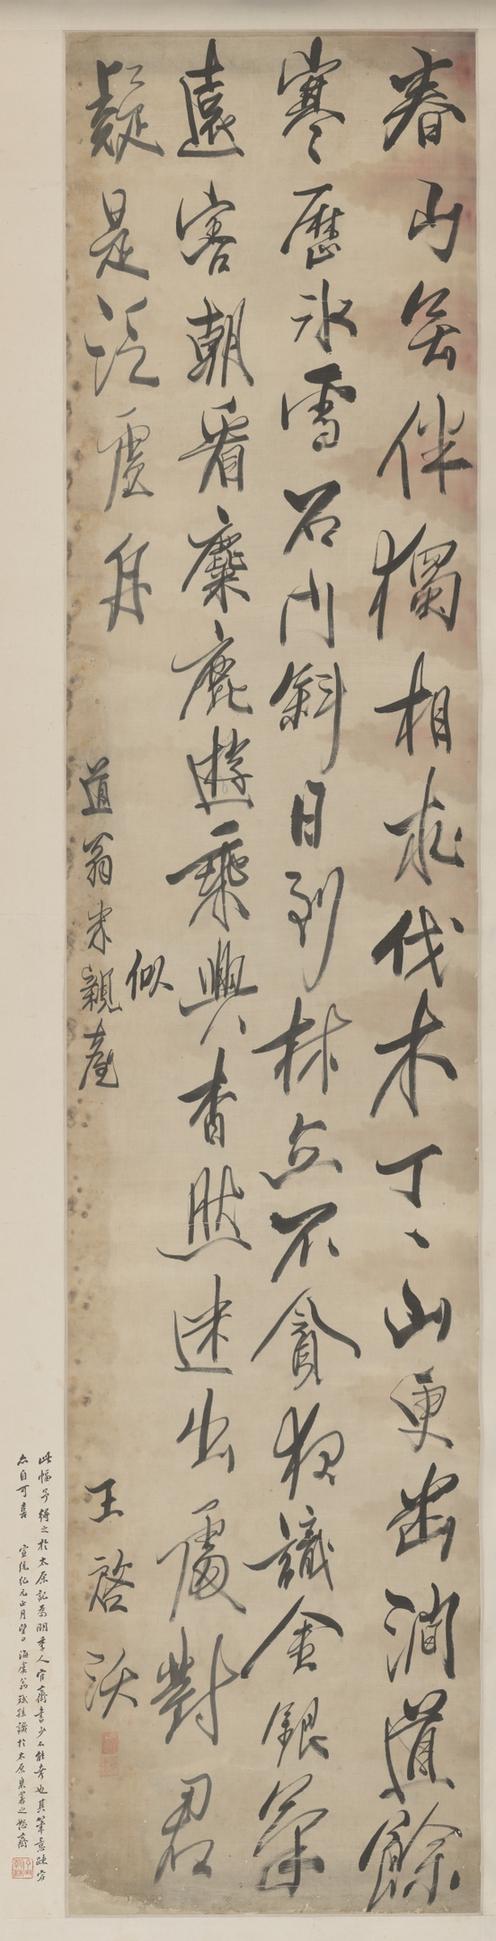 春山无伴獨相求伐木丁丶山更幽澗道餘
寒歷氷雪石門斜日到林丘不貪夜識金銀氣
遠害朝看麋鹿遊乘興杳然迷出處對君
疑是泛虛舟
道翁 親臺
似
王啓沃
此幅予得之於太原 明季人
亦自可喜 宣統紀元正月望日海虞翁 識於太原